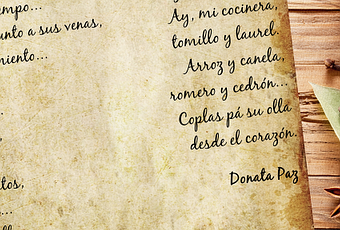 mpo...
unto a sus venas,
miento...
tos,
...
Ay, mi cocinera,
tomillo y laurel.
Arroz y canela,
romero y cedrón...
Coplas pá su olla
desde el corazón.
Donata Paz